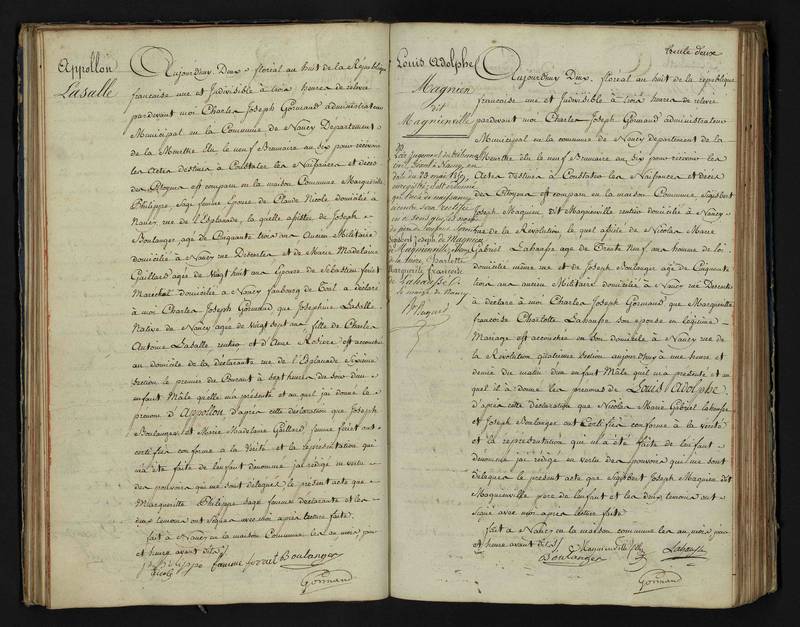 Appollon
Lasalle
Aujourd'huy Deux floréal an huit de la République
francaise une et Indivisible à trois heures de relevée
pardevant moi Charles Joseph Gormand administrateur
Municipal en la Commune de Nancy Departement
de la Meurthe élu le neuf Brumaire an six pour recevoir
les Actes destinés à Constater les Naissances et décès
des Citoyens est comparu en la maison Commune Margueritte
Philippe, Sage femme Epouse de Claude Nicole domicilié à
Nancy, rue de l'Esplanade, la quelle assistée de Joseph
Boulanger, agé de Cinquante trois ans Ancien Militaire
domicilié à Nancy rue Desertes et de Marie Madelaine
Gaillard agée de Vingt huit ans Epouse de Sébastien
Marechal domiciliée à Nancy faubourg de a déclaré
à moi Charles Joseph Gormand que Josephine Lasalle
Native de Nancy agée de Vingt sept ans fille de Charles
Antoine Lasalle, rentier et d'Anne est accouchée
au domicile de la déclarante rue de l'Esplanade Sixieme
Section le premier du Courant à sept heures du soir d'un
enfant Mâle quelle m'a présenté et au quel j'ai donné le
prénom d'Appollon, d'après cette déclaration que Joseph
Boulanger et Marie Madelaine Gaillard, femme ont
certifiée conforme à la Vérité et la représentation qui
m'a été faite de l'enfant dénommé j'ai rédigé en vertu
des pouvoirs qui me sont délégués le présent acte que
Margueritte Philippe sage femme déclarante et les
deux témoins ont signés avec moi après lecture faite.
fait à Nancy en la maison Commune les an, mois jour
et heure avant dits
philippe femme Boulanger
Nicole
Gormand
feuille deux
Louis Adolphe
Magnien
dit
Magnienville
Par Jugement du tribunal
civil séant à Nancy, en
date du 23 mai
enregistré, il est ordonné
que l'acte de naissance
ci contre sera rectifié
en ce sens que les noms
du père de l'enfant seront
Sigisbert Joseph de Magnien
de Magnienville, et ceux
de la mère, Charlotte
Marguerite Françoise
de Lahausse.
le maire de Nancy
Aujourd'huy Deux floréal an huit de la république
francaise une et Indivisible à trois heures de relevée
pardevant moi Charles Joseph Gormand administrateur
Municipal en la commune de Nancy departement de la
Meurthe élu le neuf Brumaire an six pour recevoir les
Actes destinés à Constater les Naissances et décès
des Citoyens est comparu en la maison Commune, Sigisbert
Joseph Magnien dit Magnienville rentier domicilié à Nancy
rue de la Révolution, le quel assisté de Nicolas Marie
Gabriel Lahausse agé de Trente Neuf ans homme de loi
domicilié même rue et de Joseph Boulanger agé de Cinquante
trois ans ancien Militaire domicilié à Nancy rue Desertes
à déclaré à moi Charles Joseph Gormand que Margueritte
francoise Charlotte Lahausse son épouse en légitime
Mariage est accouchée en son domicile à Nancy rue de
la Révolution quatrieme Section aujourd'huy à une heure et
demie du matin d'un enfant Mâle qu'il m'a présenté et au
quel il à donné les prénoms de Louis Adolphe,
d'après cette déclaration que Nicolas Marie Gabriel Lahausse
et Joseph Boulanger ont Certifiée conforme à la vérité
et la représentation qui m'a été faite de l'enfant
dénommé j'ai rédigé en vertu des pouvoirs qui me sont
délégués le présent acte que Sigisbert Joseph Magnien dit
Magnienville père de l'enfant et les deux témoins ont
signé avec moi après lecture faite
fait à Nancy en la maison commune les an, mois jour
et heure avant dits
Magnienville Lahausse
Boulanger
Gormand